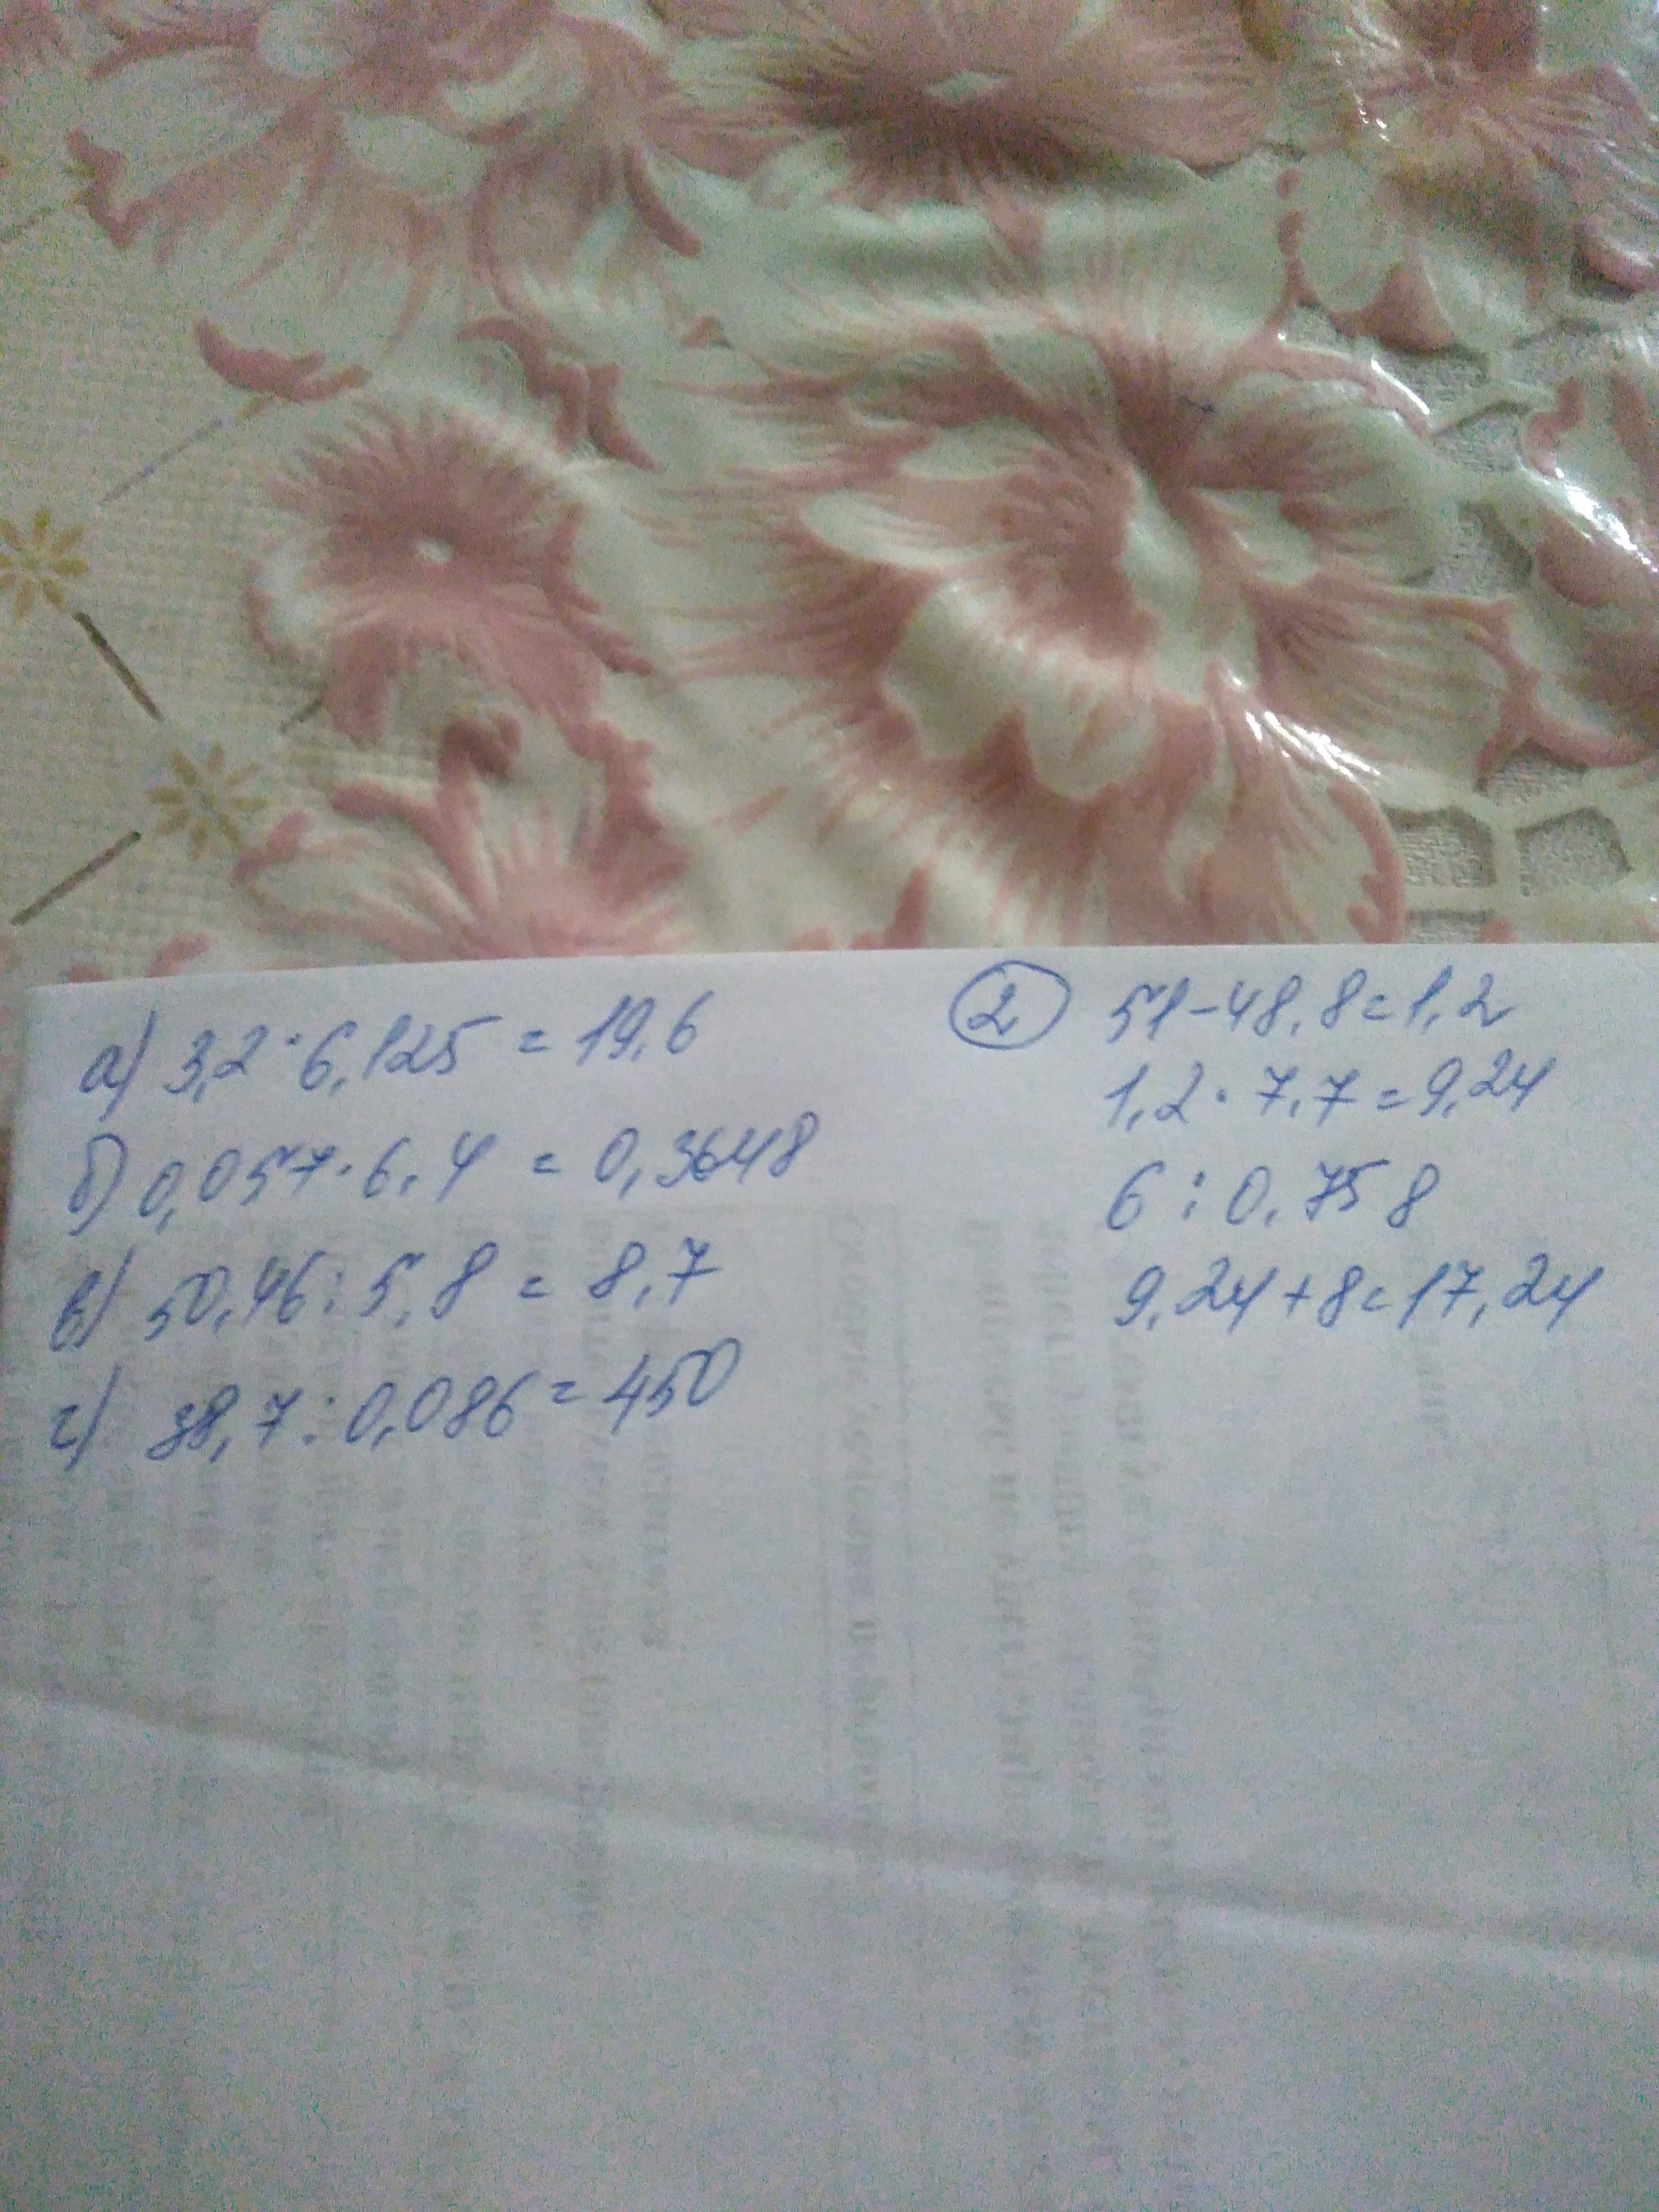 а) 3,2·6,125 = 19,6
б) 0,057·6,4 = 0,3648
в) 50,46:5,8 = 8,7
г) 38,7:0,086 = 450
2 51-48,8=1,2
1,2·7,7=9,24
6:0,75 8
9,24+8=17,24